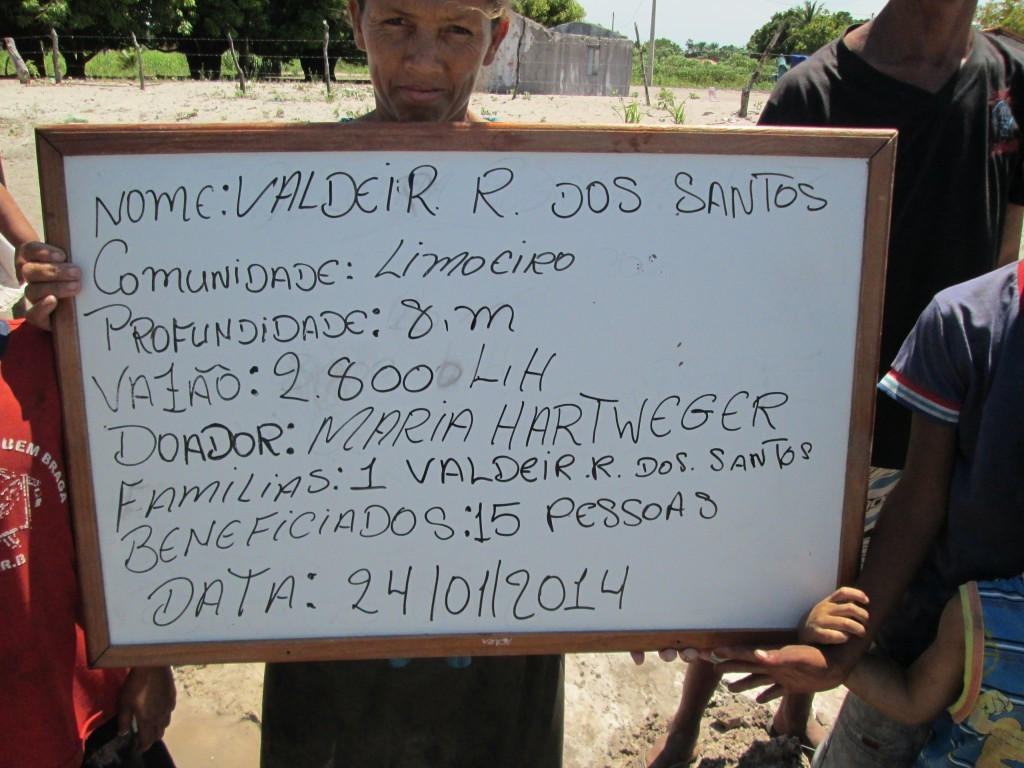 NOME: VALDEIR. R. DOS SANTOS
COMUNIDADE: LIMOEIRO
PROFUNDIDADE: 8.m
VAZÃO: 2.800 LIH
DOADOR: MARIA HARTWEGER
FAMILIAS: 1 VALDEIR. R. DOS. SANTOS
BENEFICIADOS: 15 PESSOAS
DATA: 24/01/2014
UEM BRAGA
R.B